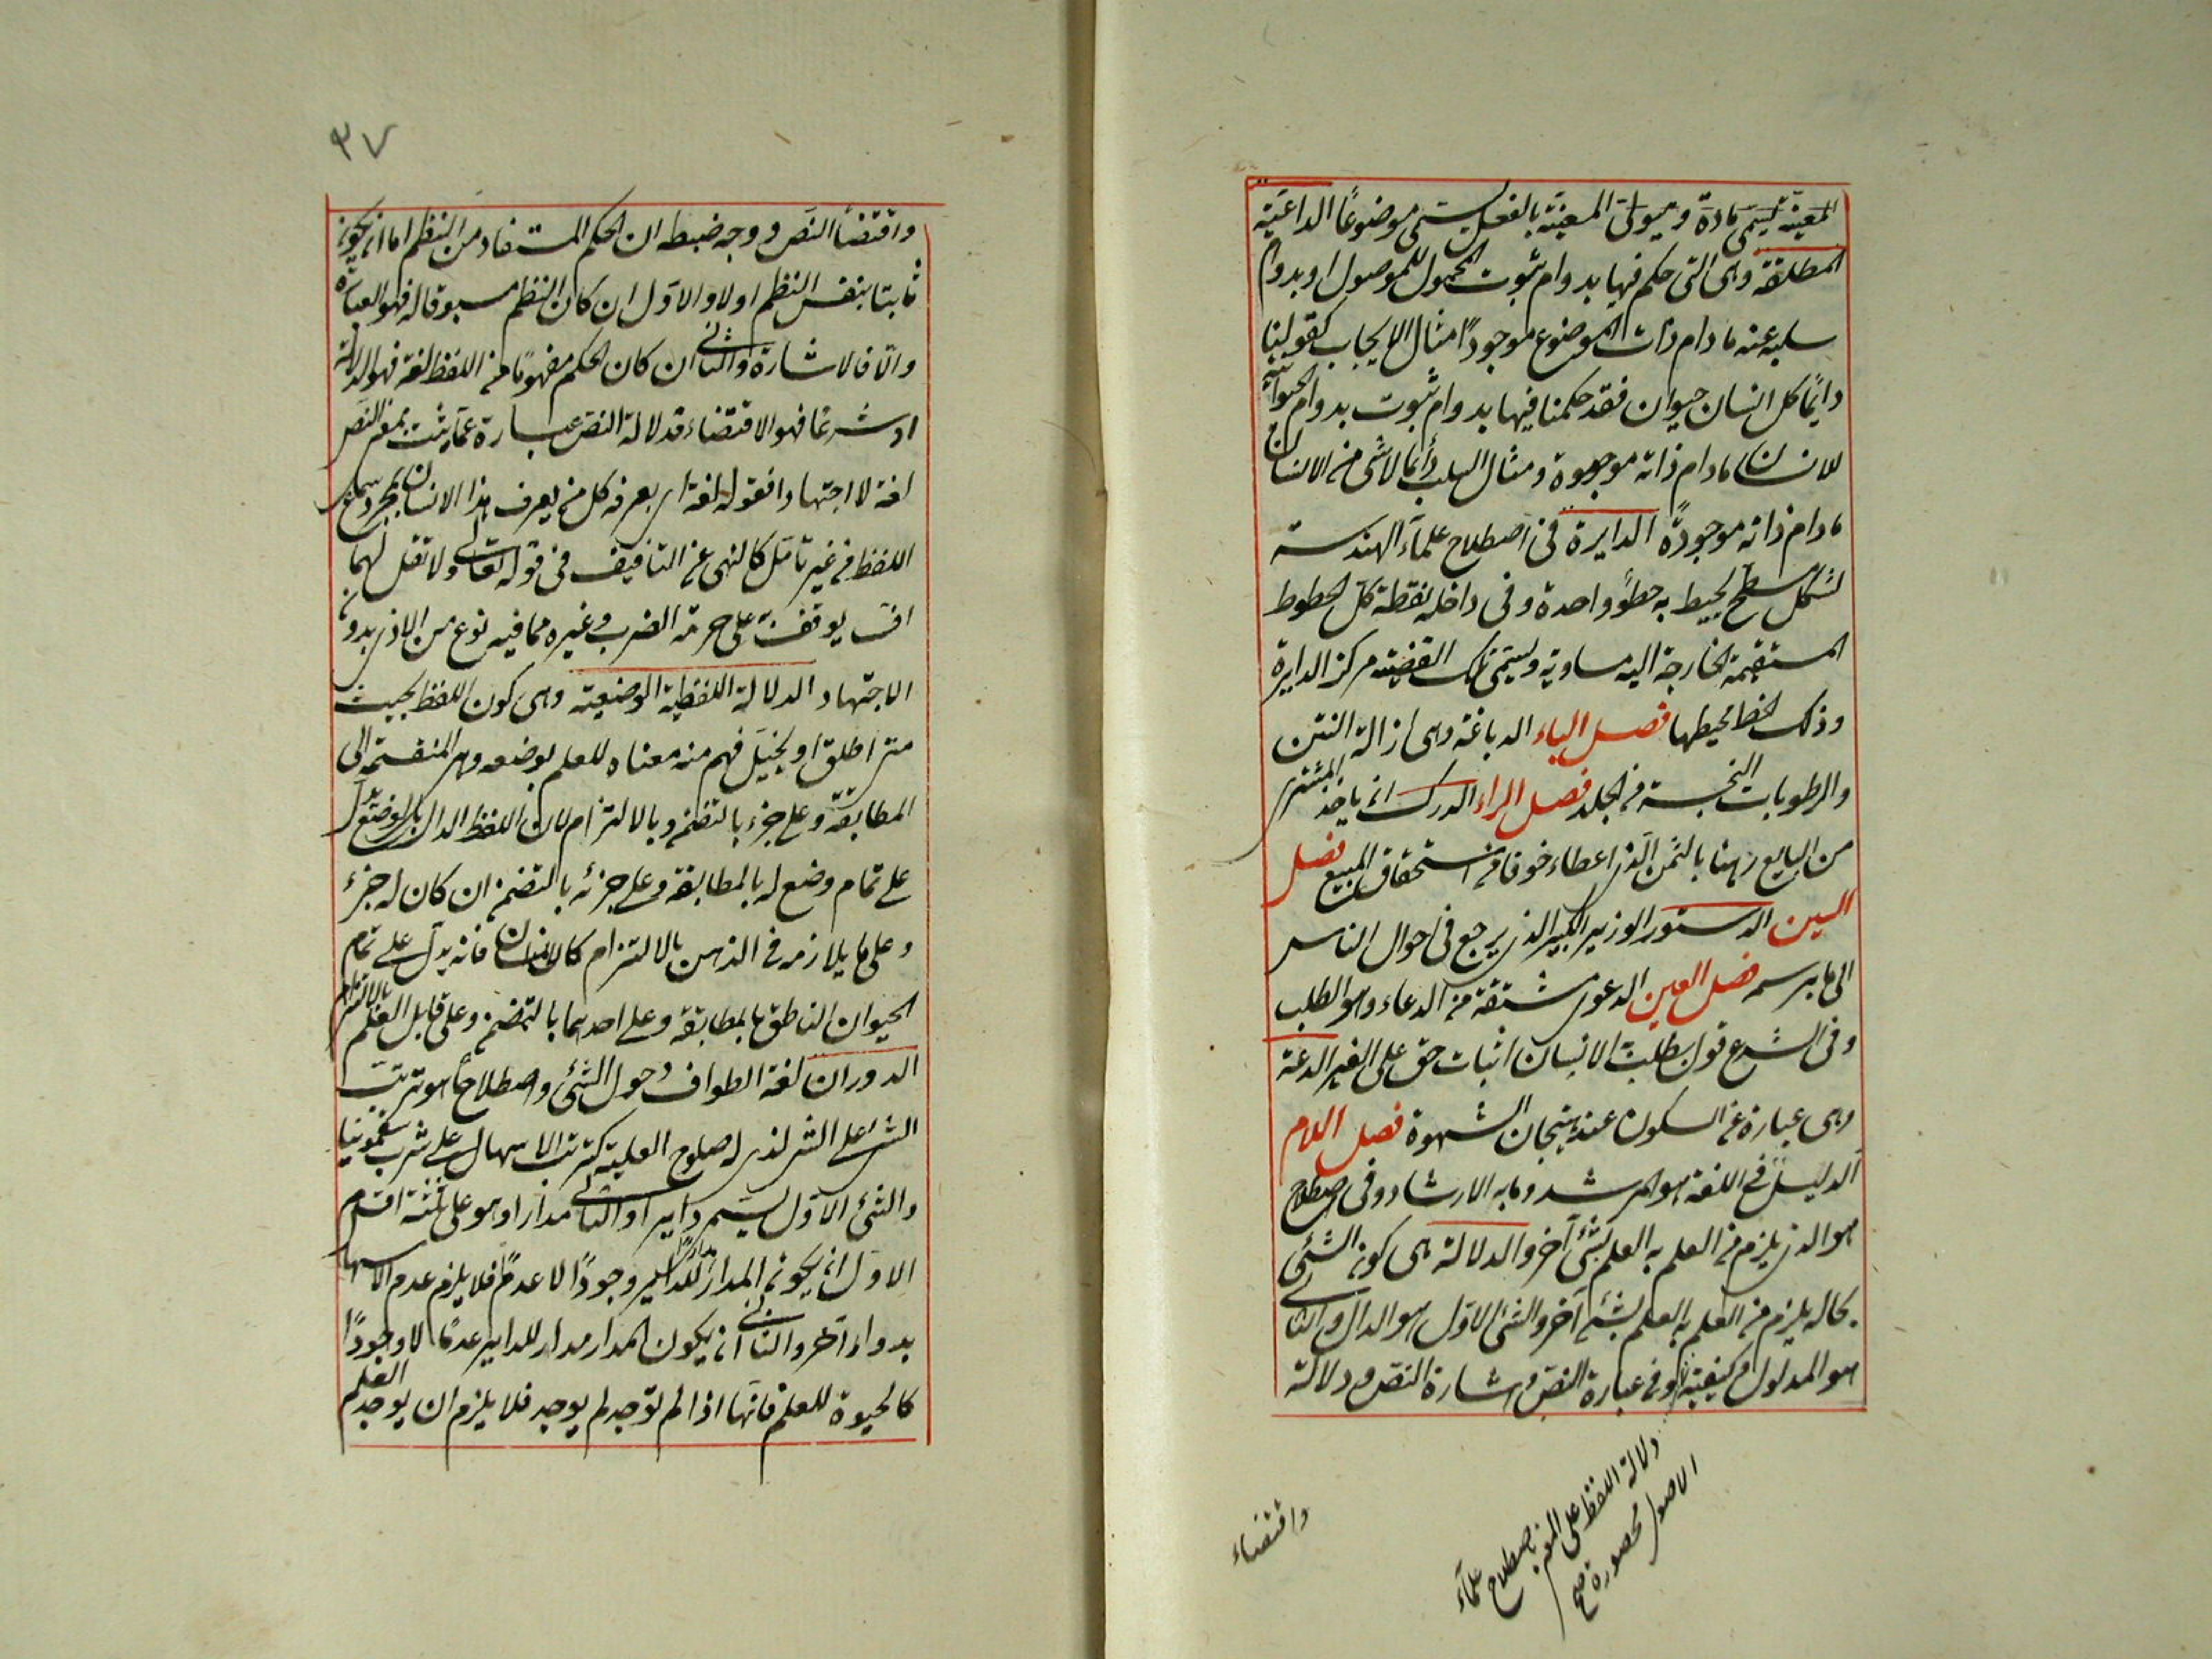 المعينة يسمى مادة وهيولى المعينة بالفعل يسمى موضوعا الدائمة
المطلقة وهى التى حكم فيها بدوام ثبوت المحمول للموصول او بدوام
سلبه عنه مادام ذات الموضوع موجودًا مثال الايجاب كقولنا
دايمًا كل انسان حيوان فقد حكمنا فيها بدوام ثبوت بدوام الحيوانية
للانسان مادام ذاته موجودة ومثال السلب دائما لا شئ من الانسان
مادام ذاته موجودةً الدايرة فى اصطلاح علمآء الهندسة
شكل سطح يحيط به خط واحدة وفى داخله نقطة كل الخطوط
المستقيمة الخارجة اليه مساوية ويسمى تلك القضية مركز الدايرة
وذلك الخط محيطها فصل الباء الدباغة وهى ازالة النتن
والرطوبات النجسة من الجلد فصل الراء الدرك ان ياخذ المشترى
من البايع رهنا بالثمن الذى اعطاء خوفا من استحقاق المبيع فصل
السين الدستور الوزير الكبير الذى يرجع فى احوال الناس
الى ما يرسمه فصل العين الدعوى مشتقة من الدعاء وهو الطلب
وفى الشرع قول يطلب الانسان اثبات حق على الغير الدعة
وهى عبارة عن السكون عند هيجان الشهوة فصل اللام
الدليل فى اللغة هو المرشد وما به الارشاد وفى اصطلاح
هو الذى يلزم من العلم به العلم بشئ آخر والدلالة هى كون الشئ
بحاله يلزم من العلم به العلم بشئ آخر والشئ الاول هو الدال والثانى
هو المدلول وكيفية فى عبارة النص واشارة النص ودلالة
دلالة اللفظ على المعنى باصطلاح علمآء
الاصول محصورة صح
واقتضاء
٣٧
واقتضأ النص ووجه ضبطه ان الحكم المستفاد من النظم اما ان يكون
ثابتا بنفس النظم اولا والاول ان كان النظم مسبوقا له فهو العبارة
والا فالاشارة والثانى ان كان الحكم مفهومًا من اللفظ لغة فهو الدلالة
او شرعًا فهو الاقتضاء فدلالة النص عبارة عما ثبت بمعنى النص
لغة لا اجتهادا فقوله لغة اى يعرفه كل من يعرف هذا الانسان بمجرد سماع
اللفظ من غير تامل كالنهى عن التافيف فى قوله تعالى ولا تقل لهما
اف يوقف به على حرمة الضرب وغيره مما فيه نوع من الاذى بدون
الاجتهاد الدلالة اللفظية الوضعية وهى كون اللفظ بحيث
متى اطلق او تخيل فهم منه معناه للعلم بوضعه وهى المنقسمة الى
المطابقة وعلى جزء بالتضمن وبالالتزام لان اللفظ الدال بالوضع يدل
على تمام وضع له بالمطابقة وعلى جزئه بالتضمن ان كان له جزء
وعلى ما يلازمه فى الذهن بالالتزام كالانسان فانه يدل على تمام
الحيوان الناطق بالمطابقة وعلى احدهما بالتضمن وعلى قابل العلم بالالتزام
الدوران لغة الطواف حول الشئ واصطلاحًا هو ترتب
الشئ على الشئ الذى له صلوح العلية كترتب الاسهال على شرب سقمونيا
والشئ الاول يسمى دايرا والثانى مدارا وهو على ثلثة اقسام
الاول ان يكون المدار مدارًا للداير وجودًا لا عدمًا فلا يلزم عدم الاسهال
بدواء آخر والثانى ان يكون المدار مدار للداير عدمًا لا وجودًا
كالحيوة للعلم فانها اذا لم توجد لم يوجد فلا يلزم ان يوجد العلم